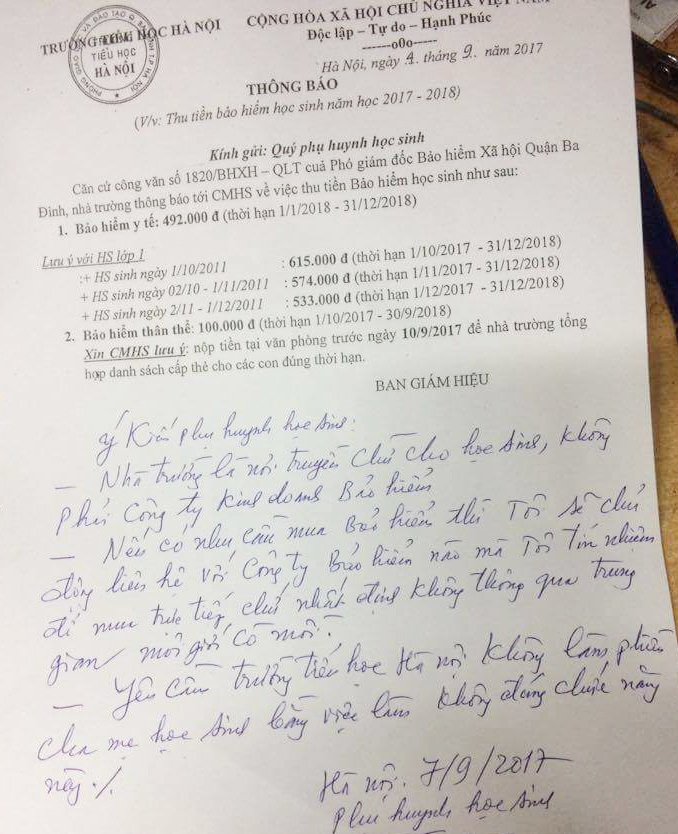 TRƯỜNG TIỂU HỌC HÀ NỘI
CỘNG HÒA XÃ HỘI CHỦ NGHĨA VIỆT
TRƯỜNG
TIỂU HỌC
HÀ NỘI
Độc lập – Tự do – Hạnh Phúc
------o0o------
Hà Nội, ngày 4. tháng 9. năm 2017
THÔNG BÁO
(V/v: Thu tiền bảo hiểm học sinh năm học 2017 - 2018)
Kính gửi: Quý phụ huynh học sinh
Căn cứ công văn số 1820/BHXH – QLT cuả Phó giám đốc Bảo hiểm Xã hội Quận Ba
Đình, nhà trường thông báo tới CMHS về việc thu tiền Bảo hiểm học sinh như sau:
1. Bảo hiểm y tế: 492.000 đ (thời hạn 1/1/2018 - 31/12/2018)
Lưu ý với HS lớp 1
:+ HS sinh ngày 1/10/2011 : 615.000 đ (thời hạn 1/10/2017 - 31/12/2018)
+ HS sinh ngày 02/10 - 1/11/2011 : 574.000 đ (thời hạn 1/11/2017 - 31/12/2018)
+ HS sinh ngày 2/11 - 1/12/2011 : 533.000 đ (thời hạn 1/12/2017 - 31/12/2018)
2. Bảo hiểm thân thể: 100.000 đ (thời hạn 1/10/2017 - 30/9/2018)
Xin CMHS lưu ý: nộp tiền tại văn phòng trước ngày 10/9/2017 để nhà trường tổng
hợp danh sách cấp thẻ cho các con đúng thời hạn.
BAN GIÁM HIỆU
ý Kiến phụ huynh học sinh:
– Nhà trường là nơi truyền chữ cho học sinh, không
phải công ty kinh doanh Bảo hiểm
– Nếu có nhu cầu mua Bảo hiểm thì Tôi sẽ chủ
động liên hệ với Công ty Bảo hiểm nào mà Tôi Tín nhiệm
để mua trực tiếp, chứ nhất định không thông qua trung
gian môi giới cò mồi.
– Yêu cầu trường tiểu học Hà nội không làm phiền
cha mẹ học sinh bằng việc làm không đúng chức năng
này ./.
Hà nội. 7/9/2017
Phụ huynh học sinh